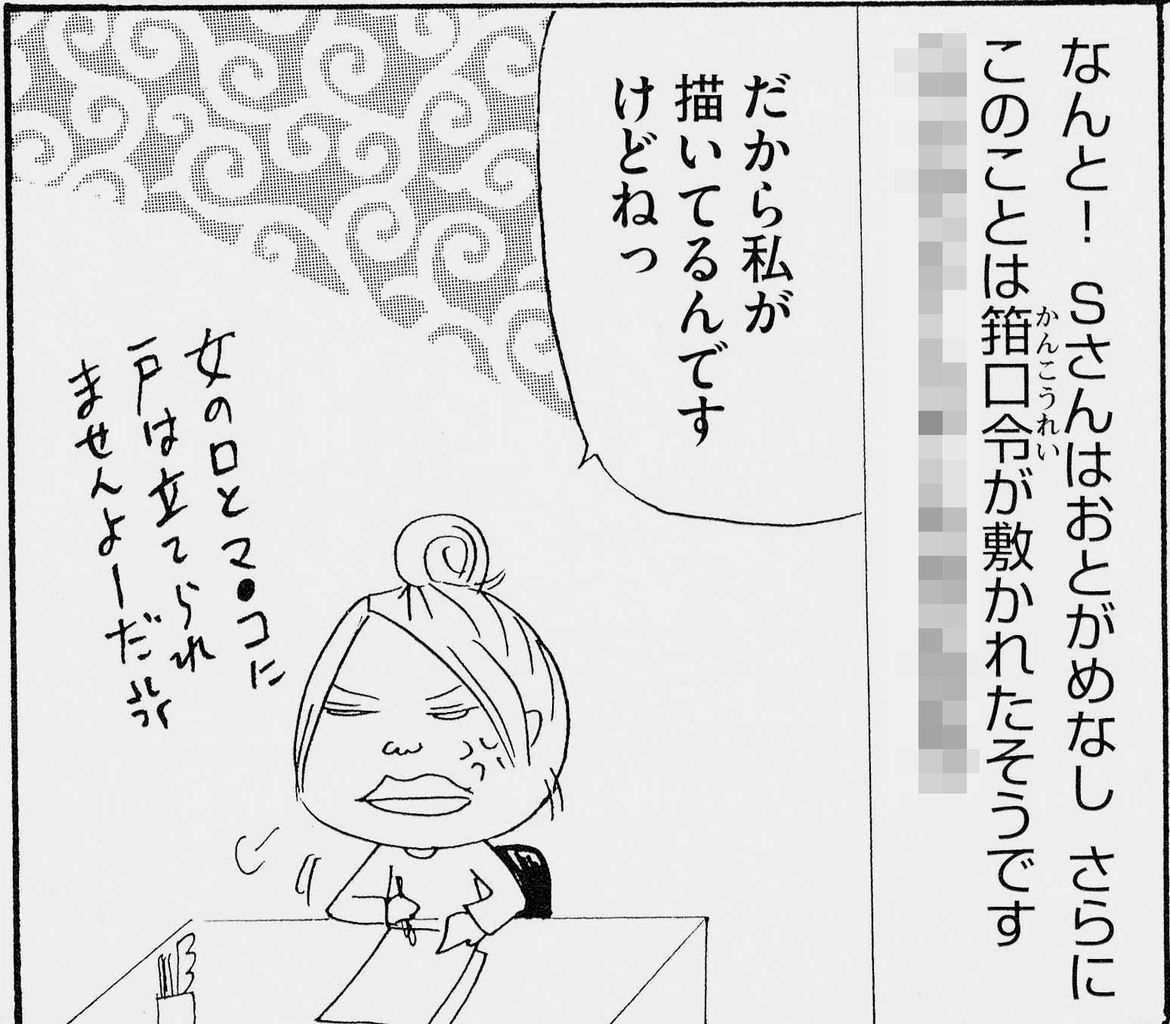 なんと！ Sさんはおとがめなし さらに
このことは箝口令が敷かれたそうです
かんこうれい
だから私が
描いてるんです
けどねっ
女の口とマ●コに
戸は立てられ
ませんよーだ